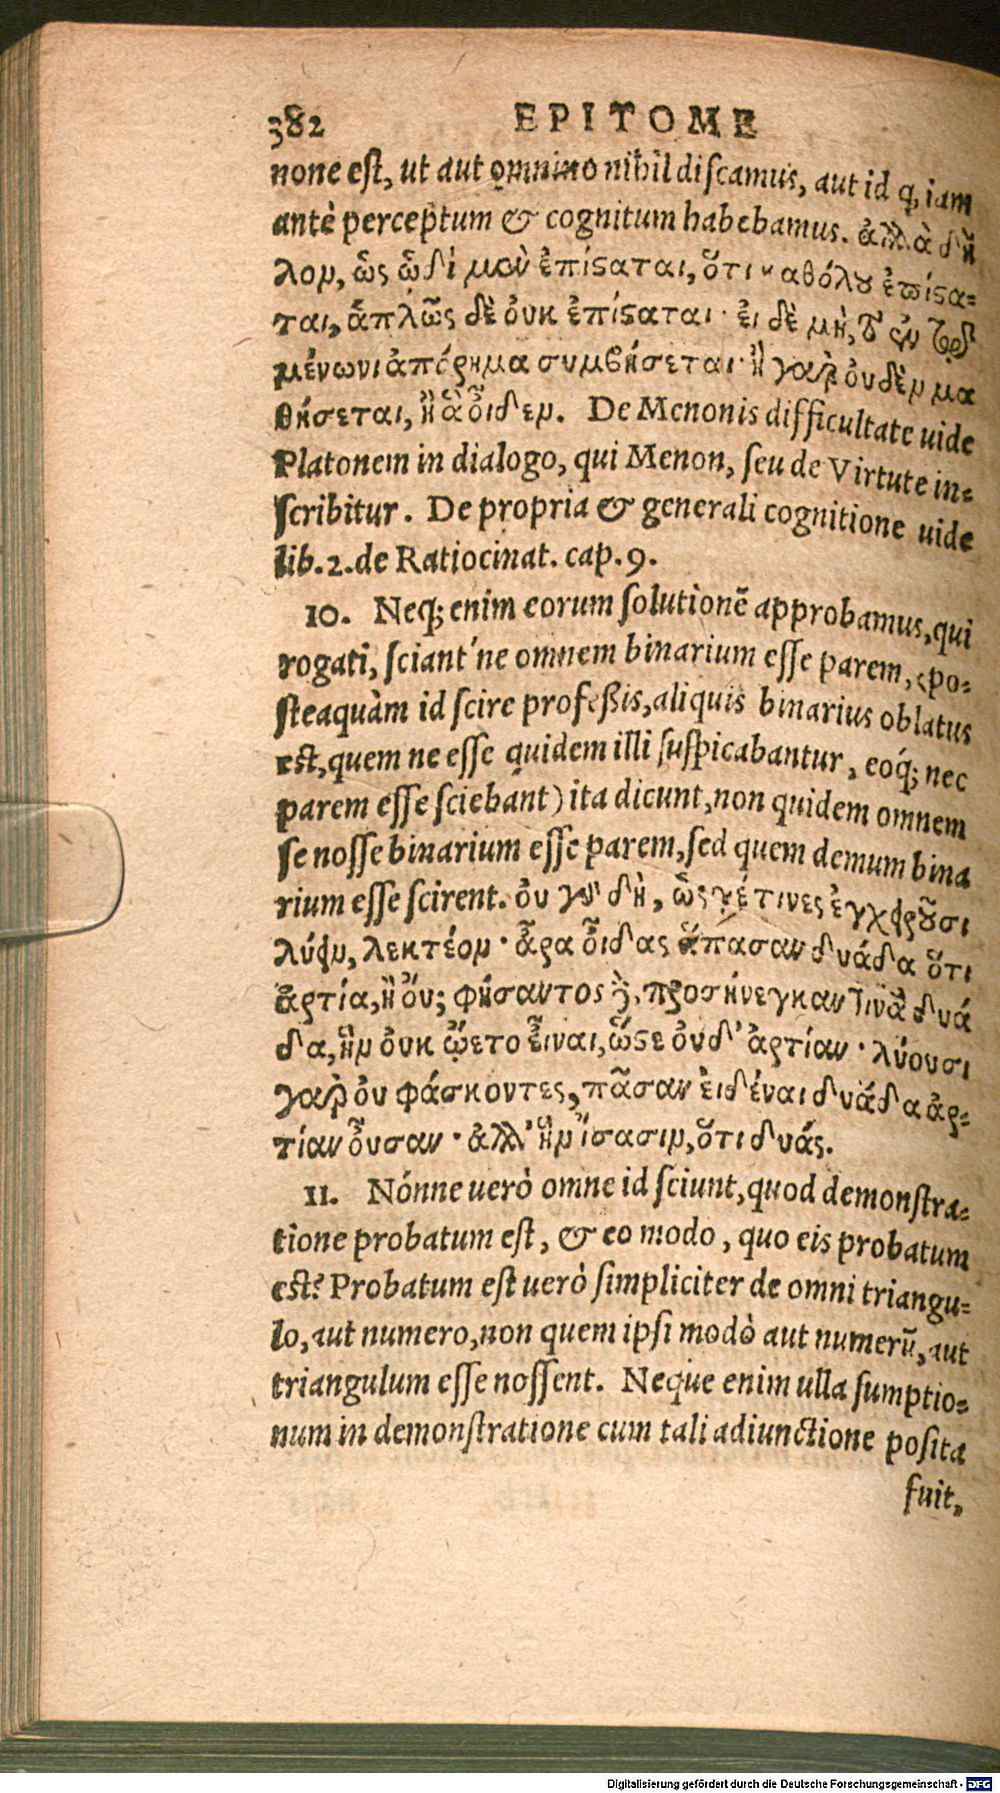 382 EPITOME
none est, ut aut omnino nihil discamus, aut id q, iam
antè perceptum & cognitum habebamus. ἀλλὰ δῆ
λον, ὡς ὡδὶ μὲν ἐπίσαται, ὅτι καθόλου ἐπίστα-
ται, ἁπλῶς δὲ οὐκ ἐπίσταται· εἰ δὲ μὴ, τὸ ἐν τῷ
μένωνι ἀπόρημα συμβήσεται· ἢ γαρ οὐδὲν μα
θήσεται, ἢ ἃ οἶδεν. De Menonis difficultate uide
Platonem in dialogo, qui Menon, seu de Virtute in-
scribitur. De propria & generali cognitione uide
lib. 2. de Ratiocinat. cap. 9.
10. Neq; enim eorum solutionẽ approbamus, qui
rogati, sciant'ne omnem binarium esse parem, (po-
steaquàm id scire professis, aliquis binarius oblatus
est, quem ne esse quidem illi suspicabantur, eoq́; nec
parem esse sciebant) ita dicunt, non quidem omnem
se nosse binarium esse parem, sed quem demum bina
rium esse scirent. οὐ γὰρ δὴ, ὥς γέ τινες ἐγχειροῦσι
λύειν, λεκτέον· ἆρα οἶδας ἅπασαν δυάδα ὅτι
ἀρτία, ἢ οὔ; φήσαντος δὲ, προσήνεγκαν τινὰ δυά
δα, ἣν οὐκ ᾤετο εἶναι, ὥστε οὐδ' ἀρτίαν· λύουσι
γαρ οὐ φάσκοντες, πᾶσαν εἰδέναι δυάδα ἀρ-
τίαν οὖσαν· ἀλλ' ἣν ἴσασιν, ὅτι δυάς.
11. Nónne uerò omne id sciunt, quod demonstra-
tione probatum est, & eo modo, quo eis probatum
est? Probatum est uerò simpliciter de omni triangu-
lo, aut numero, non quem ipsi modò aut numerũ, aut
triangulum esse nossent. Neque enim ulla sumptio-
num in demonstratione cum tali adiunctione posita
fuit,
Digitalisierung gefördert durch die Deutsche Forschungsgemeinschaft - DFG